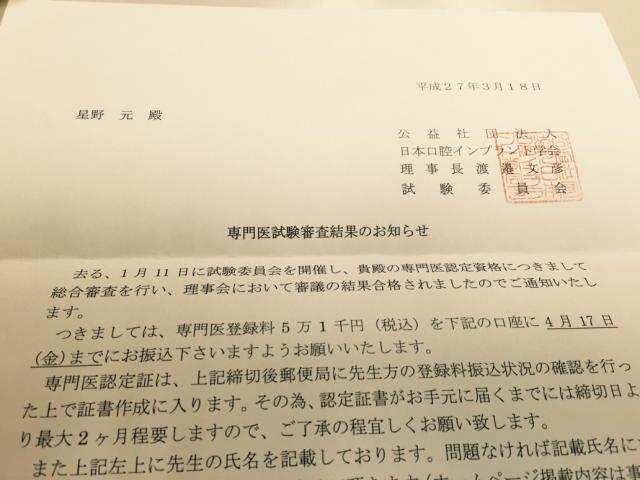 平成27年3月18日
星野 元 殿
公益社団法人
日本口腔インプラント学会
理事長渡邉文彦
試験委員会
専門医試験審査結果のお知らせ
去る、1月11日に試験委員会を開催し、貴殿の専門医認定資格につきまして
総合審査を行い、理事会において審議の結果合格されましたのでご通知いたし
ます。
つきましては、専門医登録料5万1千円(税込)を下記の口座に4月17日
(金)までにお振込下さいますようお願いいたします。
専門医認定証は、上記締切後郵便局に先生方の登録料振込状況の確認を行っ
た上で証書作成に入ります。その為、認定証書がお手元に届くまでには締切日よ
り最大2ヶ月程要しますので、ご了承の程宜しくお願い致します。
また上記左上に先生の氏名を記載しております。問題なければ記載氏名に
ホームページ掲載内容は事